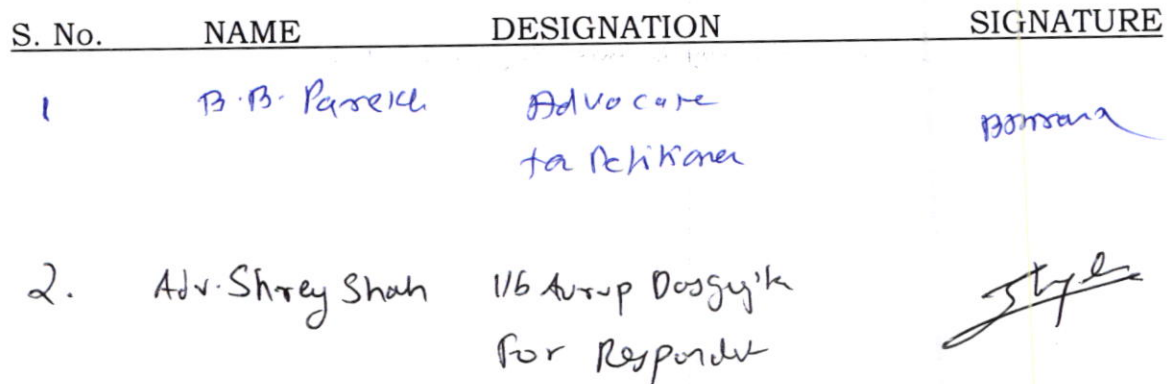 S. No. NAME DESIGNATION SIGNATURE
1 B.B. Parekh Advocate
for Petitioner
2. Adv. Shrey Shah i/b
For Respondent